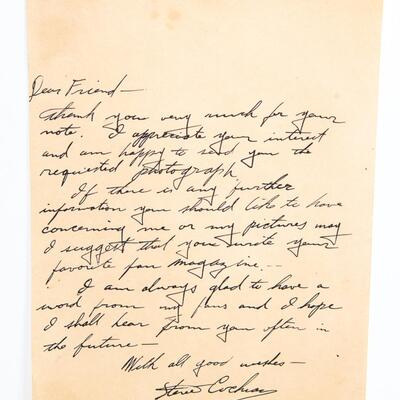 Dear Friend—
Thank you very much for your
note. I appreciate your interest
and am happy to send you the
requested photograph.
If there is any further
information you should like to have
concerning me or my pictures may
I suggest that you write your
favorite fan magazine...
I am always glad to have a
word from my fans and I hope
I shall hear from you often in
the future—
With all good wishes—
Steve Cochran